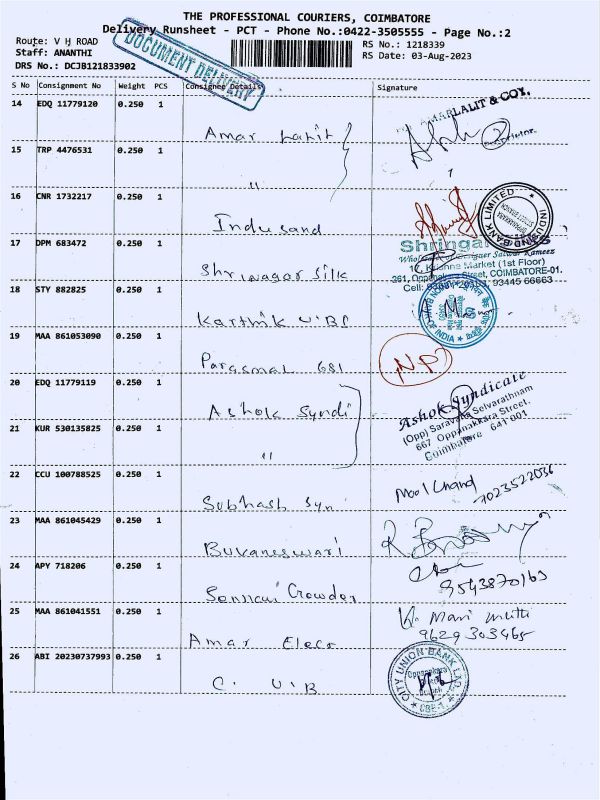 THE PROFESSIONAL COURIERS, COIMBATORE
Delivery Runsheet - PCT - Phone No.:0422-3505555 - Page No.:2
Route: V H ROAD
Staff: ANANTHI
DRS No.: DCJB121833902
DOCUMENT DELIVERY
RS No.: 1218339
RS Date: 03-Aug-2023
S No Consignment No Weight PCS Consignee Details Signature
14 EDQ 11779120 0.250 1
Amar Lalit
AMARLALIT & COY.
15 TRP 4476531 0.250 1
"
16 CNR 1732217 0.250 1
Indusand
INDUSIND BANK LIMITED
17 DPM 683472 0.250 1
Shrinagar Silk
Market (1st Floor)
Street, COIMBATORE-01.
93445 66663
18 STY 882825 0.250 1
Karthik
OF INDIA
19 MAA 861053090 0.250 1
Parasmal 681
NP
20 EDQ 11779119 0.250 1
Ashok Syndi
Ashok Syndicate
(Opp) Saravana Selvarathnam
667 Oppanakkara Street,
Coimbatore 641 001
21 KUR 530135825 0.250 1
"
22 CCU 100788525 0.250 1
Subhash Syn
Mool Chand
7023522036
23 MAA 861045429 0.250 1
Buvaneswari
24 APY 718206 0.250 1
Crowder
9543870163
25 MAA 861041551 0.250 1
Amar Elecr
K. Mari
9629303465
26 ABI 20230737993 0.250 1
C. U.B
CITY UNION BANK LTD
CBE-1